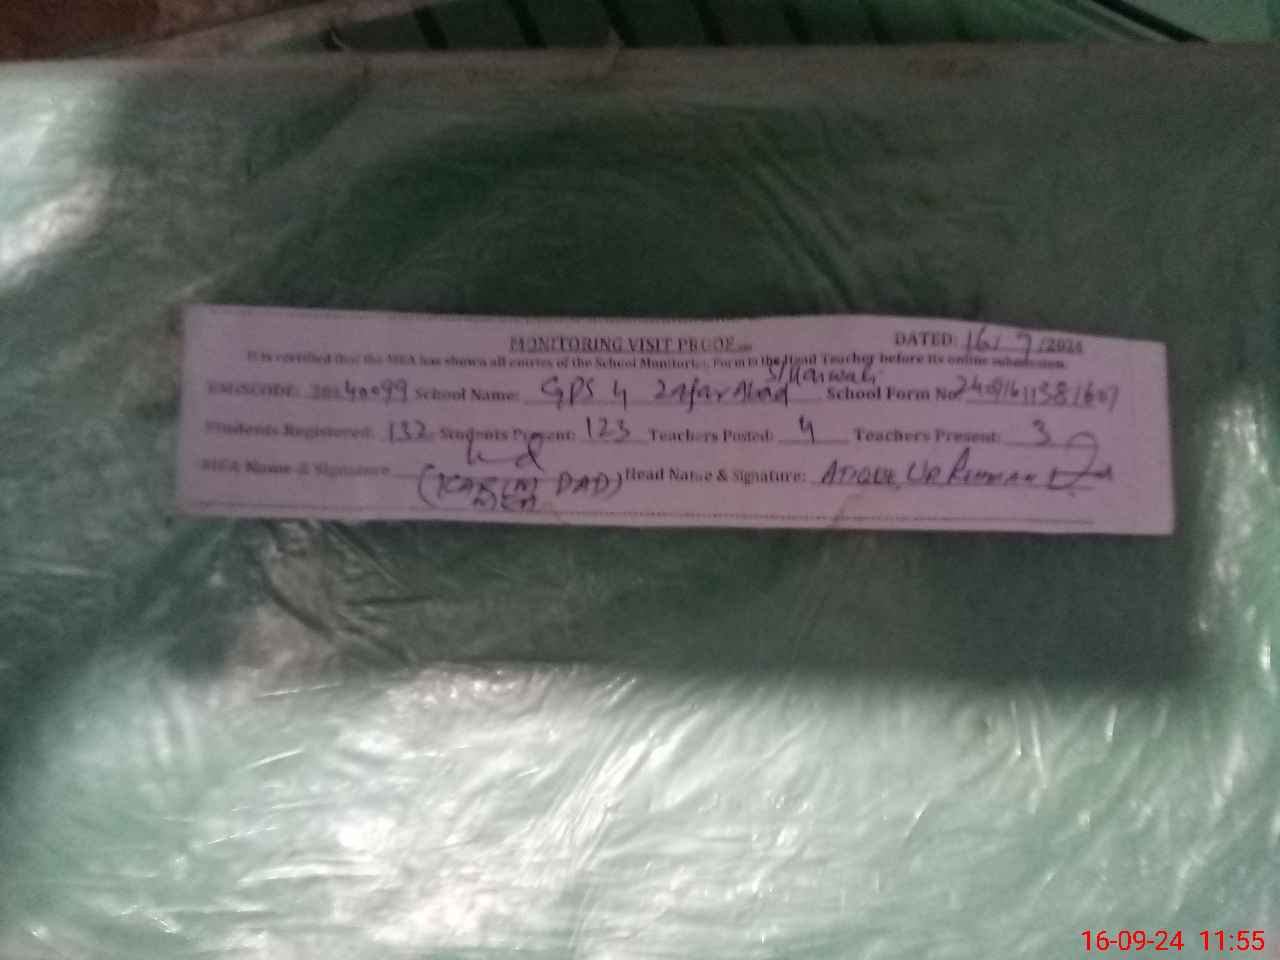 MONITORING VISIT PROOF DATED: 16/ 9 /2024
It is certified that the MEA has shown all entries of the School Monitoring Form to the Head Teacher before its online submission.
EMISCODE: 40099 School Name: GPS 4 Zafar Abad School Form No
Students Registered: 132 Students Present: 123 Teachers Posted: 4 Teachers Present: 3
MEA Name & Signature (KARIM DAD) Head Name & Signature: ATIQUE UR REHMAN
MEA
16-09-24 11:55